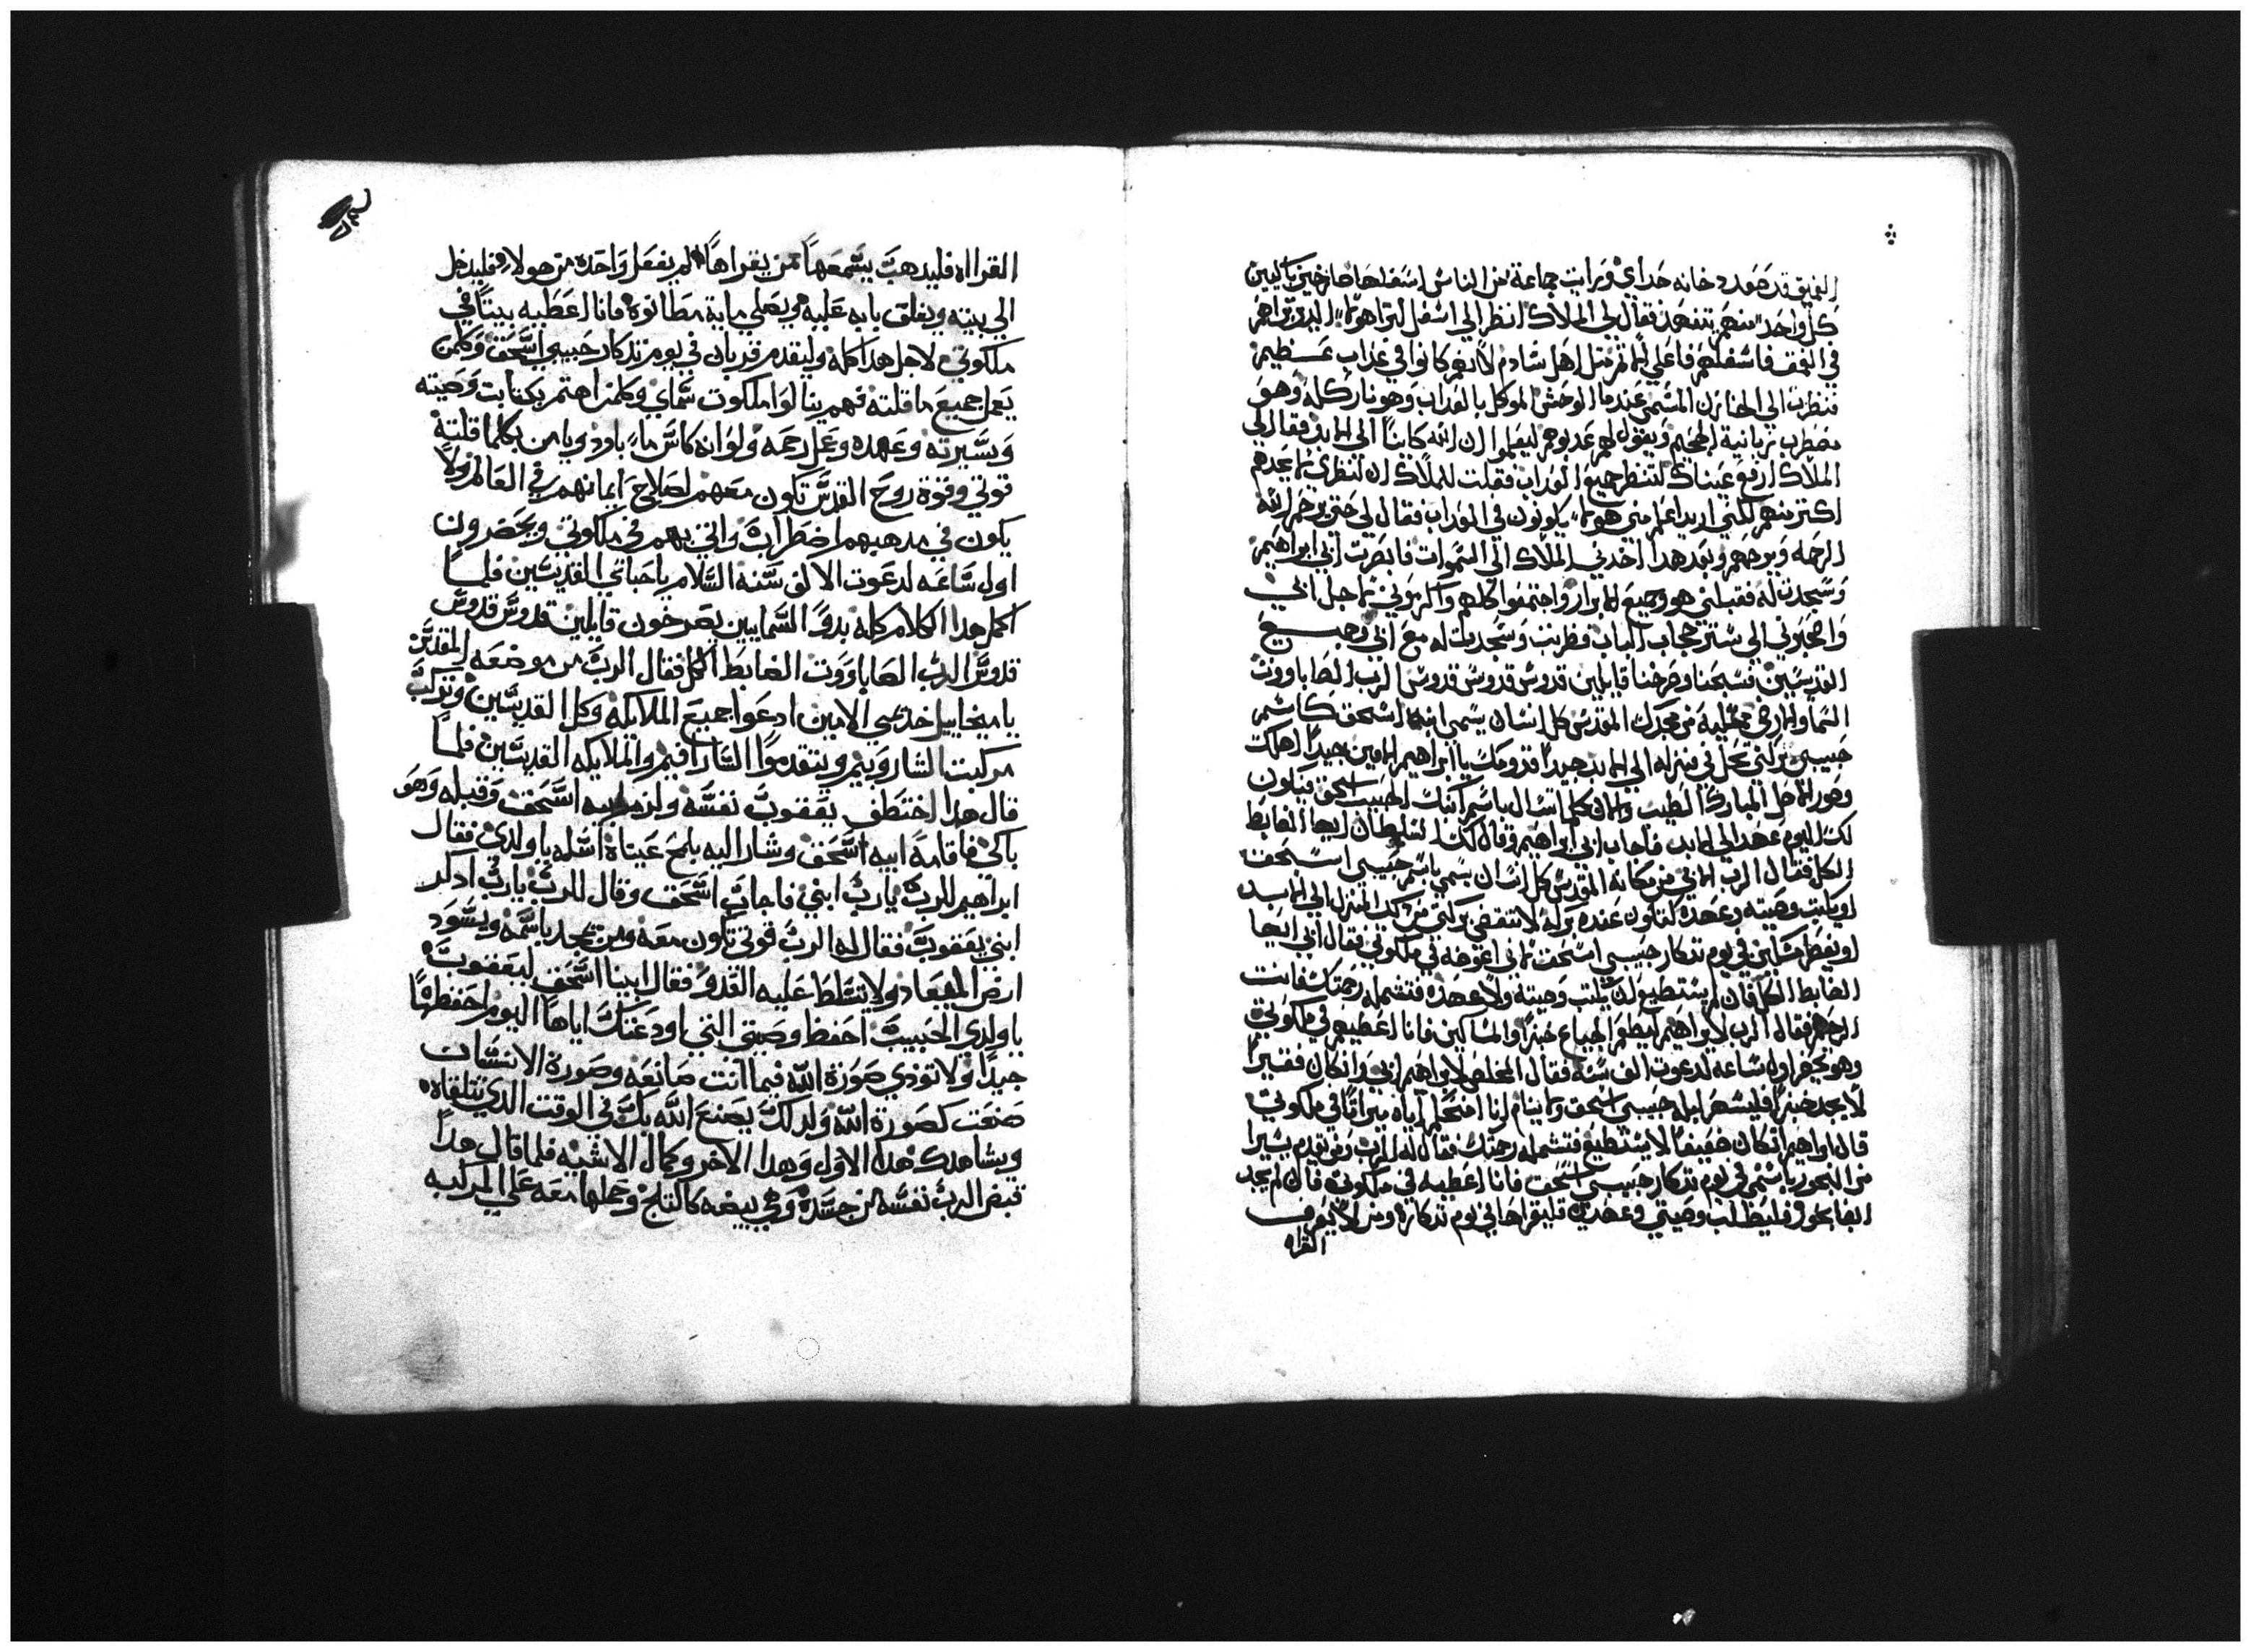 العميق قد صعد دخانه حداي ورايت جماعة من الناس اسفلها صارخين باكيين
كل واحد منهم يتنهد فقال لي الملاك انظر الي اسفل لترا هولاء الدين تراهم
في العمق فاسفلهم فاعلي لانهم مثل اهل سادوم لانهم كانوا في عذاب عظيم
فنظرت الي الخازن المسمي عندما الوحش الموكل بالعداب وهو نار كله وهو
يضطرب زبانية الجحيم ويقول لهم عدبوهم ليعلموا ان الله كاينا الي الابد فقال لي
الملاك ارفع عيناك لتنظر جميع العداب فقلت للملاك ان لنظري لا يجدهم
اكتر منهم لكني اريد اعلم متي هولاء يكونون في العداب فقال لي حتي يرحم الله
الرحمه ويرحمهم وبعد هدا اخدني الملاك الي السموات فابصرت ابي ابراهيم
وسجدت له فقبلني هو وجميع الابرار واجتمعوا كلهم واكرموني لاجل ابي
واصحبوني الي ستر حجاب الباب فخرت وسجدت له مع ابي وجميع
القديسين فسبحنا وصرخنا قايلين قدوس قدوس قدوس الرب الصاباووت
السما والارض ممتلية من مجدك المقدس كل انسان يسمي ابنه اسحق كاسم
حبيبي بركتي تحل في منزله الي الابد جيدا قدومك يا ابراهيم الامين جيدا اهلك
وصور الاصل المبارك الطيب والان كلما تسال باسم ابنك الحبيب اسحق فيكون
لك اليوم عهد الي الابد فاجاب ابي ابراهيم وقال لك السلطان ايها الضابط
الكل فقال الرب لابي من مكانه المقدس كل انسان يسمي باسم حبيبي اسحق
او يكتب وصيته وعهده لتكون عنده بركه لا تنقض بركتي من دلك المنزل الي الابد
او يفطر مساكين في يوم تدكار حبيبي اسحق لاني اعوضه في ملكوتي فقال ابي ايها
الضابط الكل فان لم يستطيع ان يكتب وصيته ولا عهده فتشمله رحمتك فانت
الرحوم فقال الرب لابراهيم ليطعم الجياع خبزا والمساكين فانا اعطيهم في ملكوتي
وهو يحضر اول ساعه لدعوت الف سنه فقال المخلص لابراهيم ابي وان كان فقيرا
لا يجد خبزا فليسهر ليله حبيبي اسحق ولا ينام انا امنحهم اياه ميراثا في ملكوتي
قال ابراهيم ان كان ضعيفا لا يستطيع فتشمله رحمتك فقال له الرب ومن يقدم يسيرا
من البخور باسمي في يوم تدكار حبيبي اسحق فانا اعطيه في ملكوتي فان لم يجد
ايضا بخور فليطلب وصيتي وعهدي فليقراها في يوم تدكاره ومن لا يعرف
القراه
القرااه فليدهب يسمعها ممن يقراها لم يفعل واحده من هولاء فليدخل
الي بيته ويغلق بابه عليه ويصلي ماية مطانوة فانا اعطيه بيتا في
ملكوتي لاجل هدا كله وليقدم قربان في يوم تدكار حبيبي اسحق وكلمن
يعمل جميع ما قلته فهم ينالوا ملكوت سماي وكلمن اهتم بكتابت وصيته
وسيرته وعهده وعمل رحمه ولو انه كاس ماء بارد ويامن بكلما قلته
قوتي وقوة روح القدس تكون معهم لصلاح ايمانهم في العالم ولا
يكون في مدهبهم اضطراب واتي بهم في ملكوتي ويحضرون
اول ساعه لدعوت الالف سنه السلام يا احباي القديسين فلما
اكمل هدا الكلام كله بدوا السمايين يصرخون قايلين قدوس قدوس
قدوس الرب الصاباووت الضابط الكل فقال الرب من موضعه المقدس
يا ميخاييل خديمي الامين ادعوا جميع الملايكه وكل القديسين وتركب
مركبت الشاروبيم ويتقدموا السارافيم والملايكه القديسين فلما
قال هدا اختطف يعقوب نفسه ولزم ابيه اسحق وقبله وهو
باكي فاقامه ابيه اسحق وشار اليه بلمح عيناه اسله يا ولدي فقال
ابراهيم للرب يارب ابني فاجاب اسحق وقال للرب يارب ادكر
ابني يعقوب فقال له الرب قوتي تكون معه ومن يجد باسمه ويسود
ارض الميعاد ولا يتسلط عليه العدو فقال ابينا اسحق ليعقوب
يا ولدي الحبيب احفظ وصيتي التي اودعتك اياها اليوم احفظها
جيدا ولا تودي صورة الله فيما انت صانعه وصورة الانسان
صنعت كصورة الله ولدلك يصنع الله بك في الوقت الدي تلقاه
ويشاهدك هدا الاول وهدا الاخر وكمال الاشيه فلما قال هدا
قبض الرب نفسه من جسده وهي بيضه كالتلج وحملها معه علي المركبه